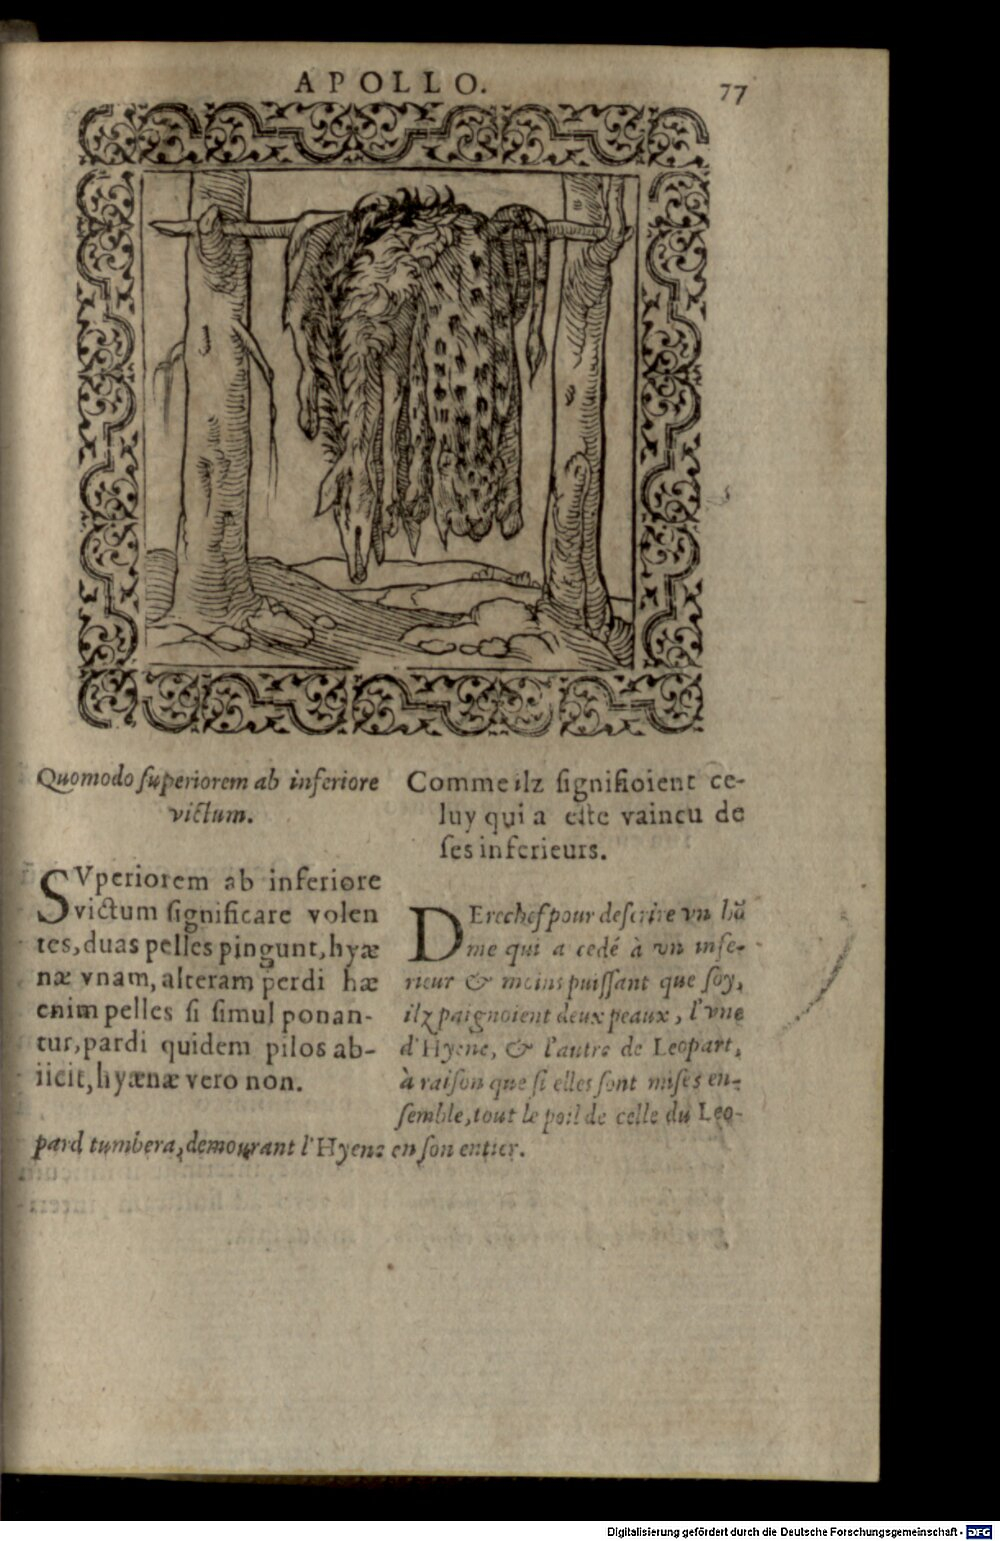 APOLLO.
77
Quomodo ſuperiorem ab inferiore
victum.
SVperiorem ab inferiore
victum ſignificare volen
tes, duas pelles pingunt, hyæ
næ vnam, alteram perdi hæ
enim pelles ſi ſimul ponan-
tur, pardi quidem pilos ab-
iicit, hyænæ vero non.
Comme ilz ſignifioient ce-
luy qui a eſte vaincu de
ſes inferieurs.
DErechef pour deſcrire vn hõ
me qui a cedé à vn infe-
rieur & moins puiſſant que ſoy,
ilz paignoient deux peaux, l'vne
d'Hyene, & l'autre de Leopart,
à raiſon que ſi elles ſont miſes en-
ſemble, tout le poil de celle du Leo-
pard tumbera, demourant l'Hyene en ſon entier.
Digitalisierung gefördert durch die Deutsche Forschungsgemeinschaft - DFG